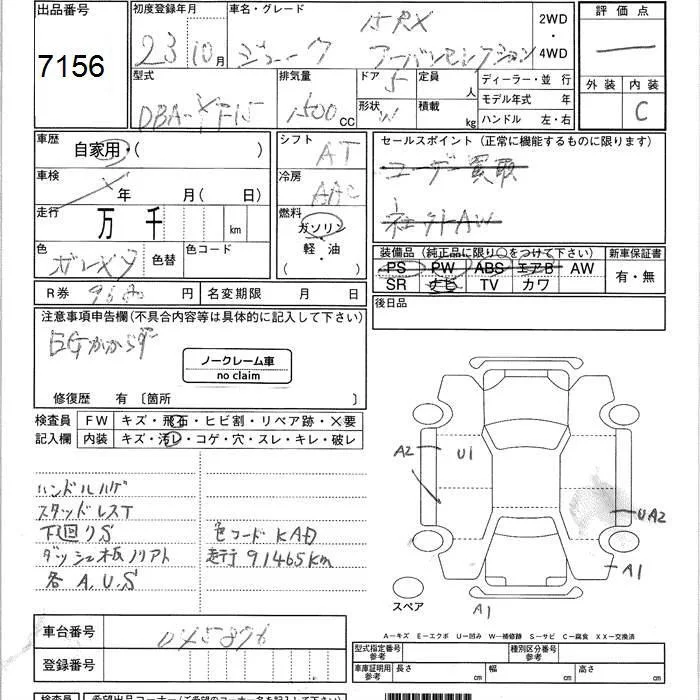 出品番号
7156
初度登録年月
23 10月
車名・グレード
15RX
ジューク アーバンセレクション
2WD
・
4WD
評価点
外装 内装
C
型式
DBA-YF15
排気量
1500 CC
ドア 5
形状 W
定員 人
積載 kg
ディーラー・並行
モデル年式 年
ハンドル 左・右
車歴 自家用・( )
シフト AT
車検 年 月( 日)
冷房 AAC
走行 万 千 km
燃料 ガソリン
軽・油
( )
色 色替 色コード
R券 円 名変期限 月 日
セールスポイント (正常に機能するものに限ります)
ユーザー買取
社外AW
装備品 (純正品に限り○をつけて下さい) 新車保証書
PS PW ABS エアB AW
SR ナビ TV カワ
有・無
後日品
注意事項申告欄(不具合内容等は具体的に記入して下さい)
EGかからず
ノークレーム車
no claim
修復歴 有 〔箇所 〕
検査員 FW キズ・飛石・ヒビ割・リペア跡・×要
記入欄 内装 キズ・汚レ・コゲ・穴・スレ・キレ・破レ
ハンドルハゲ
スタッドレスT
下廻りS
色コード KAD
ダッシュ板ノリアト
走行 91465km
各 A.U.S
A2
U1
UA2
A1
A1
スペア
A－キズ E－エクボ U－凹み W－補修跡 S－サビ C－腐食 XX－交換済
車台番号
登録番号
型式指定番号 参考
種別区分番号 参考
車庫証明用 参考
長さ cm 幅 cm 高さ cm
検査員
希望出品コーナー(ご希望のコーナー名を記入下さい)